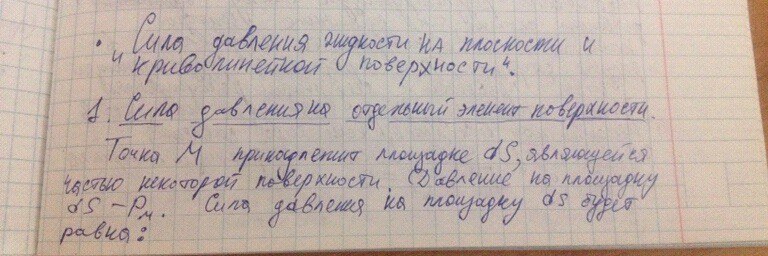 • „Сила давления жидкости на плоскости и
криволинейной поверхности".
1. Сила давления на отдельный элемент поверхности.
Точка M принадлежит площадке dS, являющейся
частью некоторой поверхности. Давление на площадку
dS – Pм. Сила давления на площадку dS будет
равна: